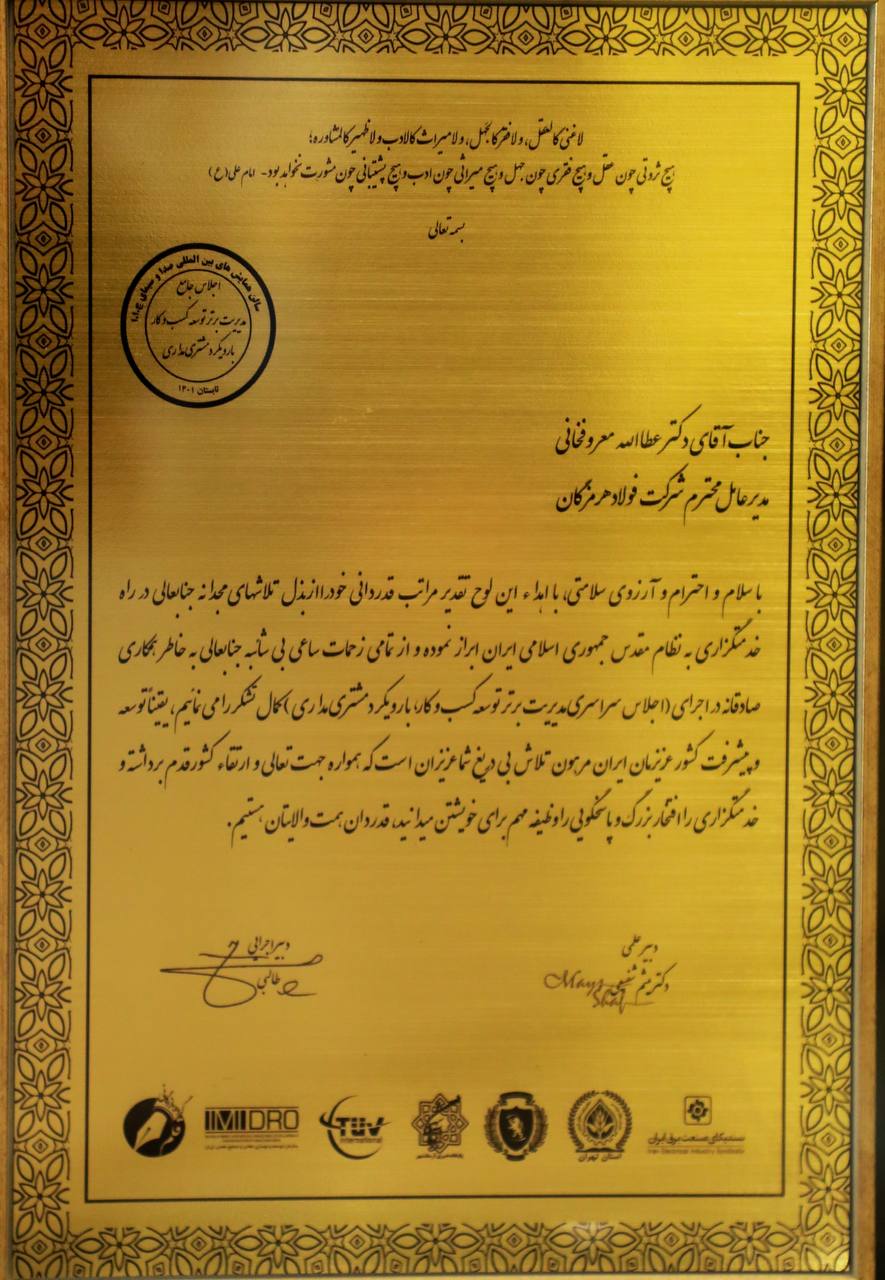 لا غنی کالعقل، ولا فقر کالجهل، ولا میراث کالادب ولا ظهیر کالمشاوره؛
هیچ ثروتی چون عقل و هیچ فقری چون جهل و هیچ میراثی چون ادب و هیچ پشتیبانی چون مشورت نخواهد بود - امام علی (ع)
بسمه تعالی
سالن همایش های بین المللی صدا و سیمای ج.ا.ا
اجلاس جامع
مدیریت برتر توسعه کسب و کار
با رویکرد مشتری مداری
تابستان ۱۴۰۱
جناب آقای دکتر عطاالله معروفخانی
مدیرعامل محترم شرکت فولاد هرمزگان
با سلام و احترام و آرزوی سلامتی، با اهداء این لوح تقدیر مراتب قدردانی خود را از بذل تلاشهای مجدانه جنابعالی در راه
خدمتگزاری به نظام مقدس جمهوری اسلامی ایران ابراز نموده و از تمامی زحمات ساعی بی شائبه جنابعالی به خاطر همکاری
صادقانه در اجرای (اجلاس سراسری مدیریت برتر توسعه کسب و کار؛ با رویکرد مشتری مداری) کمال تشکر را می نمائیم، یقیناً توسعه
و پیشرفت کشور عزیزمان ایران مرهون تلاش بی دریغ شما عزیزان است که همواره جهت تعالی و ارتقاء کشور قدم برداشته و
خدمتگزاری را افتخار بزرگ و پاسخگویی را وظیفه مهم برای خویشتن میدانید، قدردان همت والایتان هستیم.
دبیر علمی
دکتر میثم شفیعی
دبیر اجرایی
طالبی
سندیکای صنعت برق ایران
Iran Electrical Industry Syndicate
استان تهران
TÜV
International
IMIDRO